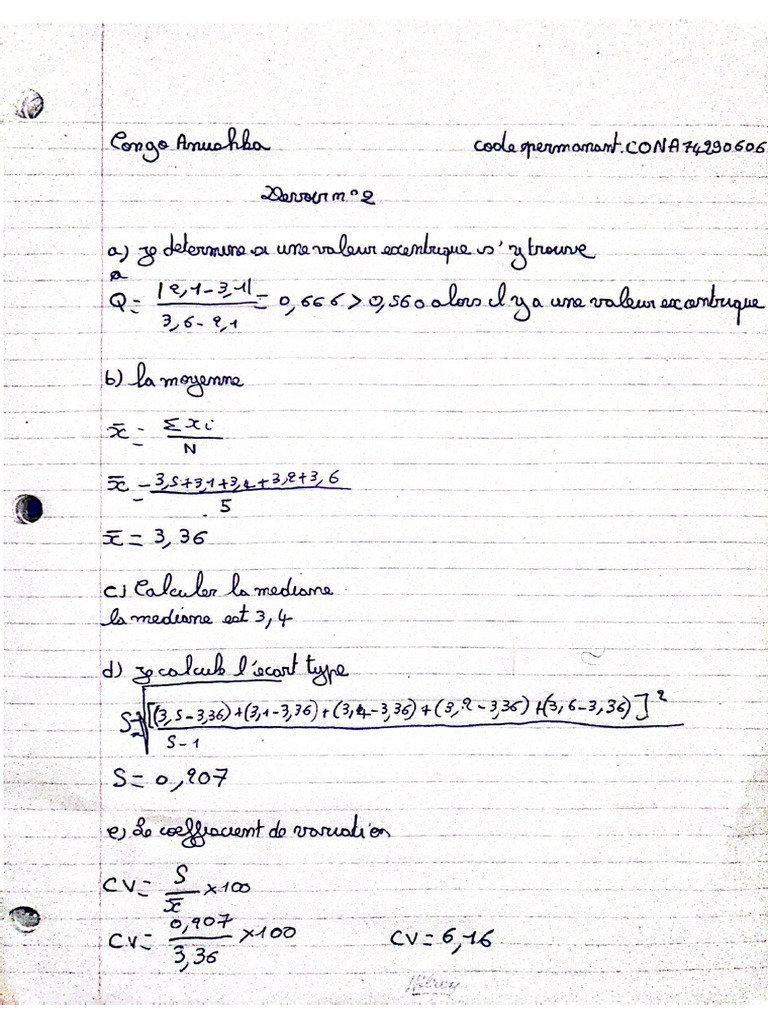 Congo Anushka code permanant.CONA74290606
Devoir n°2
a) je determine si une valeur excentrique s'y trouve
a
Q = |2,1-3,1| / 3,6-2,1 = 0,666 > 0,560 alors il y a une valeur excentrique
b) la moyenne
x̄ = Σxi / N
x̄ = 3,5+3,1+3,4+3,2+3,6 / 5
x̄ = 3,36
c) Calculer la mediane
la mediane est 3,4
d) je calcule l'écart type
S = √[(3,5-3,36)+(3,1-3,36)+(3,4-3,36)+(3,2-3,36)+(3,6-3,36)]² / 5-1
S = 0,207
e) Le coefficient de variation
CV = S / x̄ ×100
CV = 0,207 / 3,36 ×100 CV = 6,16
Hilroy